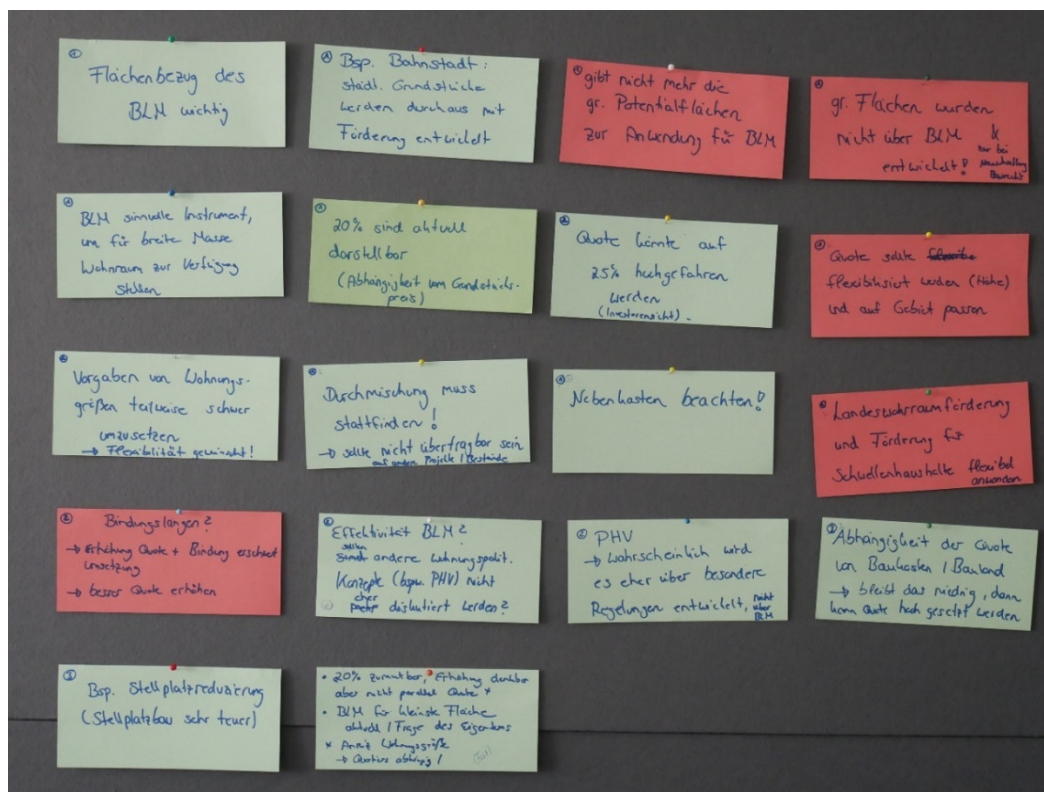 ①
Flächenbezug des
BLM wichtig
①
Bsp. Bahnstadt:
städt. Grundstücke
werden durchaus mit
Förderung entwickelt
①
gibt nicht mehr die
gr. Potentialflächen
zur Anwendung für BLM
①
gr. Flächen wurden
nicht über BLM &
entwickelt!
nur bei
Neuschaffung
Baurecht
①
BLM sinnvolle Instrument,
um für breite Masse
Wohnraum zur Verfügung
stellen
①
20% sind aktuell
darstellbar
(Abhängigkeit vom Grundstücks-
preis)
②
Quote könnte auf
25% hochgefahren
werden
(Investorensicht).
①
Quote sollte
flexibilisiert werden (Höhe)
und auf Gebiet passen
②
Vorgaben von Wohnungs-
größen teilweise schwer
umzusetzen
→ Flexibilität gewünscht!
Durchmischung muss
stattfinden!
→ sollte nicht übertragbar sein
auf andere Projekte / Bestände
Nebenkosten beachten!
Landeswohnraumförderung
und Förderung für
Schwellenhaushalte flexibel
anwenden
②
Bindungslängen?
→ Erhöhung Quote + Bindung erschwert
Umsetzung
→ besser Quote erhöhen
②
Effektivität BLM?
sollen
andere wohnungspolit.
Konzepte (bspw. PHV) nicht
eher
diskutiert werden?
②
PHV
→ wahrscheinlich wird
es eher über besondere
Regelungen entwickelt, nicht
über
BLM
②
Abhängigkeit der Quote
von Baukosten / Bauland
→ bleibt das niedrig, dann
kann Quote hoch gesetzt werden
②
Bsp. Stellplatzreduzierung
(Stellplatzbau sehr teuer)
• 20% zumutbar, Erhöhung denkbar
aber nicht parallel Quote *
• BLM für kleinste Fläche
aktuell / Frage des Eigentums
* Anreiz Wohnungsgröße
→ Quartiers abhängig!